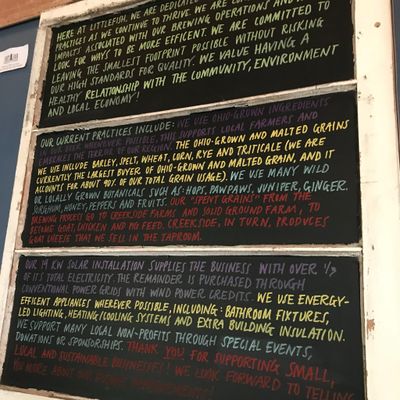 HERE AT LITTLEFISH, WE ARE DEDICATED
PRACTICES AS WE CONTINUE TO THRIVE. WE ARE
IMPACTS ASSOCIATED WITH OUR BREWING OPERATIONS AND
LOOK FOR WAYS TO BE MORE EFFICENT. WE ARE COMMITTED TO
LEAVING THE SMALLEST FOOTPRINT POSSIBLE WITHOUT RISKING
OUR HIGH STANDARDS FOR QUALITY. WE VALUE HAVING A
HEALTHY RELATIONSHIP WITH THE COMMUNITY, ENVIRONMENT
AND LOCAL ECONOMY!
OUR CURRENT PRACTICES INCLUDE: WE USE OHIO-GROWN INGREDIENTS
IN OUR BEER WHENEVER POSSIBLE, THIS SUPPORTS LOCAL FARMERS AND
EMBRACES THE TERROIR OF OUR REGION. THE OHIO-GROWN AND MALTED GRAINS
WE USE INCLUDE BARLEY, SPELT, WHEAT, CORN, RYE AND TRITICALE (WE ARE
CURRENTLY THE LARGEST BUYER OF OHIO-GROWN AND MALTED GRAIN, AND IT
ACCOUNTS FOR ABOUT 90% OF OUR TOTAL GRAIN USAGE). WE USE MANY WILD
OR LOCALLY GROWN BOTANICALS SUCH AS: HOPS, PAWPAWS, JUNIPER, GINGER,
SORGHUM, HONEY, PEPPERS AND FRUITS. OUR "SPENT GRAINS" FROM THE
BREWING PROCESS GO TO CREEKSIDE FARMS AND SOLID GROUND FARM, TO
BECOME GOAT, CHICKEN AND PIG FEED. CREEKSIDE, IN TURN, PRODUCES
GOAT CHEESE THAT WE SELL IN THE TAPROOM.
OUR 19 KW SOLAR INSTALLATION SUPPLIES THE BUSINESS WITH OVER 1/3
OF ITS TOTAL ELECTRICITY. THE REMAINDER IS PURCHASED THROUGH
CONVENTIONAL POWER GRIDS WITH WIND POWER CREDITS. WE USE ENERGY-
EFFICENT APPLIANCES WHEREVER POSSIBLE, INCLUDING: BATHROOM FIXTURES,
LED LIGHTING, HEATING/COOLING SYSTEMS AND EXTRA BUILDING INSULATION.
WE SUPPORT MANY LOCAL NON-PROFITS THROUGH SPECIAL EVENTS,
DONATIONS OR SPONSORSHIPS. THANK YOU FOR SUPPORTING SMALL,
LOCAL AND SUSTAINABLE BUSINESSES! WE LOOK FORWARD TO TELLING
YOU MORE ABOUT OUR